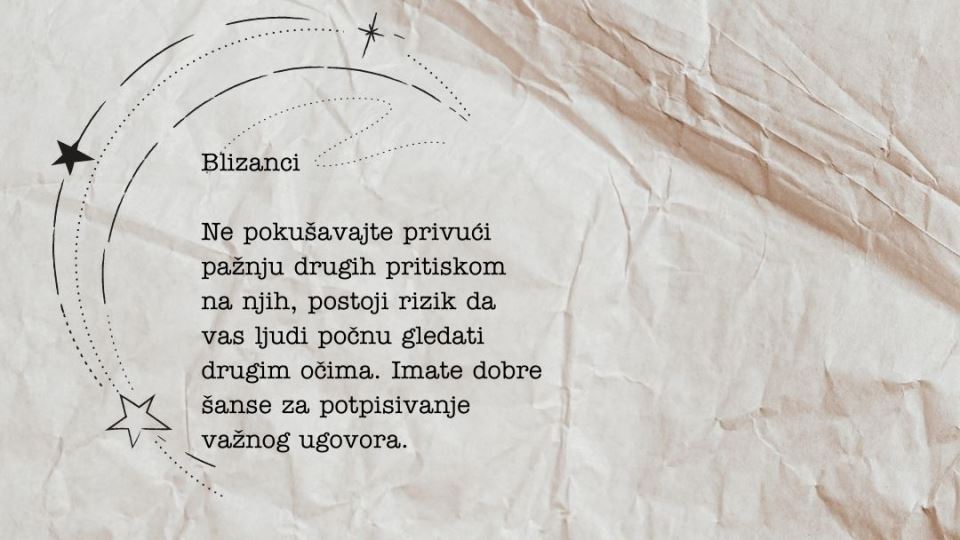 Blizanci
Ne pokušavajte privući
pažnju drugih pritiskom
na njih, postoji rizik da
vas ljudi počnu gledati
drugim očima. Imate dobre
šanse za potpisivanje
važnog ugovora.